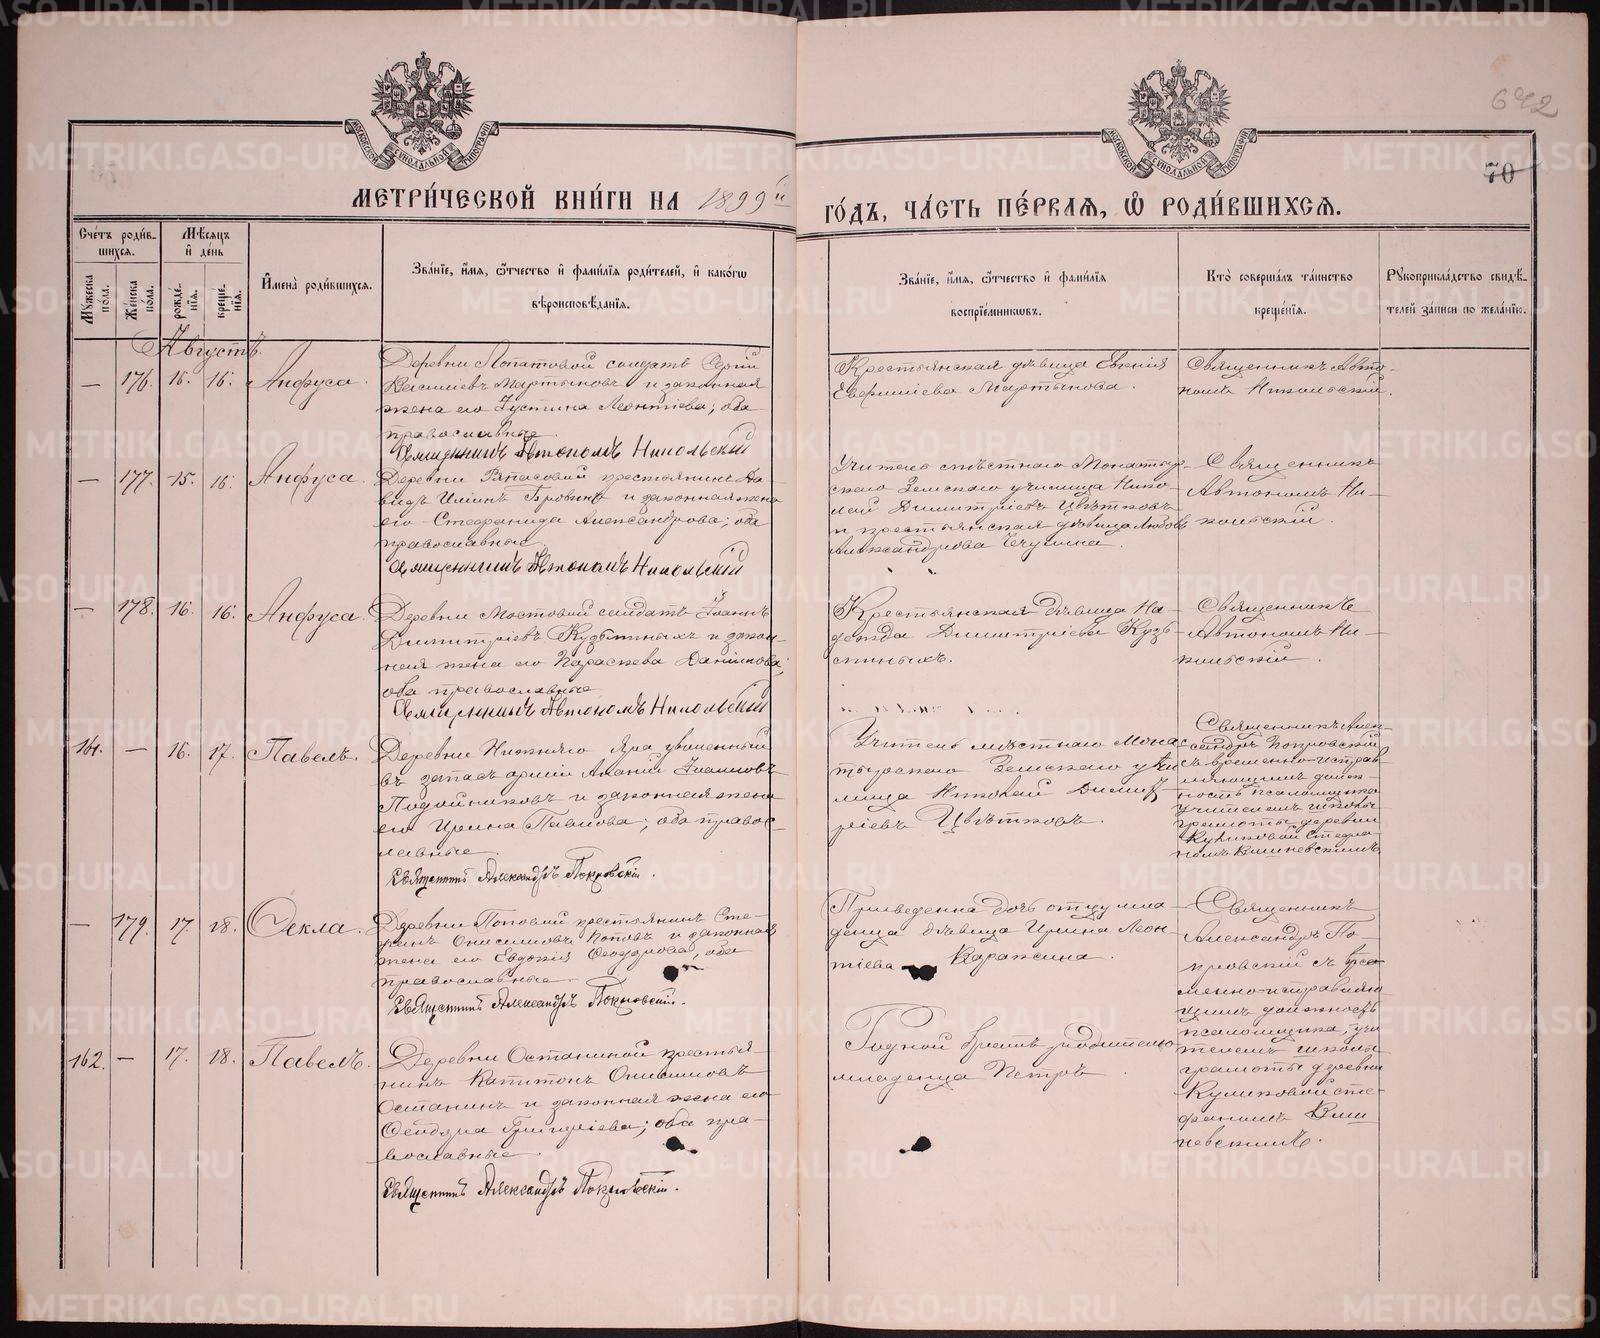 642
70
МОСКОВСКОЙ СѴНОДАЛЬНОЙ ТИПОГРАФІИ
МОСКОВСКОЙ СѴНОДАЛЬНОЙ ТИПОГРАФІИ
МЕТРИ́ЧЕСКОЙ КНИ́ГИ НА 1899й
ГО́ДЪ, ЧА́СТЬ ПЕ́РВАЯ, Ѡ РОДИ́ВШИХСЯ.
Сче́тъ роди́вшихся.
Мꙋ́жеска по́ла.
Же́нска по́ла.
Мѣ́сяцъ и҆ де́нь
рожде́нїя.
креще́нїя.
И҆мена̀ роди́вшихся.
Зва́нїе, и҆́мя, ѻ҆́тчество и҆ фами́лїя роди́телей, и҆ како́гѡ вѣроисповѣ́данїя.
Зва́нїе, и҆́мя, ѻ҆́тчество и҆ фами́лїя воспрїе́мникѡвъ.
Кто̀ соверша́лъ та́инство креще́нїя.
Рꙋкоприкла́дство свидѣ́телей за́писи по жела́нїю.
Августъ.
— 176. 15. 16. Анфуса.
Деревни Лопатовой солдатъ Сергій
Васильевъ Мартыновъ и законная
жена его Іустина Леонтіева; оба
православные.
Священникъ Автономъ Никольскій
Крестьянская дѣвица Евгенія
Евфиміева Мартынова.
Священникъ Авто-
номъ Никольскій.
— 177. 15. 16. Анфуса.
крестьянинъ Да-
видъ Ильинъ и законная жена
его Стефанида Александрова; оба
православные.
Священникъ Автономъ Никольскій
Учитель мѣстнаго Монастыр-
скаго Земскаго училища Нико-
лай Димитріевъ Цвѣтковъ
и крестьянская дѣвица Любовь
Александрова
Священникъ
Автономъ Ни-
кольскій.
— 178. 16. 16. Анфуса.
Деревни Мостовой солдатъ Іоаннъ
Димитріевъ Кузьминыхъ и закон-
ная жена его Параскева Даніилова;
оба православные
Священникъ Автономъ Никольскій
Крестьянская дѣвица На-
дежда Димитріева Кузь-
миныхъ.
Священникъ
Автономъ Ни-
кольскій.
— 16. 17. Павелъ.
Деревни Нижняго Яра уволенный
въ запасъ арміи Ананій Іоанновъ
Подойниковъ и законная жена
его Ирина Павлова; оба правос-
лавные.
Священникъ Александръ Покровскій.
Учитель мѣстнаго Мона-
стырскаго Земскаго учи
лища Николай Димит-
ріевъ Цвѣтковъ.
Священникъ Алек-
сандръ Покровскій
съ временно-исправ-
ляющимъ долж-
ность псаломщика
учителемъ школы
грамоты деревни
Куликовой Стефа-
номъ Вишневскимъ
— 179. 17. 18. Ѳекла.
Деревни Поповой крестьянинъ Сте-
фанъ Онисимовъ Поповъ и законная
жена его Евдокія Ѳеодорова; оба
православные.
Священникъ Александръ Покровскій.
Приведенна дочь отцу мла-
денца дѣвица Ирина Леон-
тіева
Священникъ
Александръ По-
кровскій съ вре-
менно-исправляю
щимъ должность
псаломщика, учи
телемъ школы
грамоты деревни
Куликовой Сте-
фаномъ Виш-
невскимъ.
162. — 17. 18. Павелъ.
Деревни Останиной крестья-
нинъ Капитонъ Онисимовъ
Останинъ и законная жена его
Ѳеодора Григоріева; оба пра-
вославные.
Священникъ Александръ Покровскій.
Родной братъ родителю
младенца Петръ.
METRIKI.GASO-URAL.RU